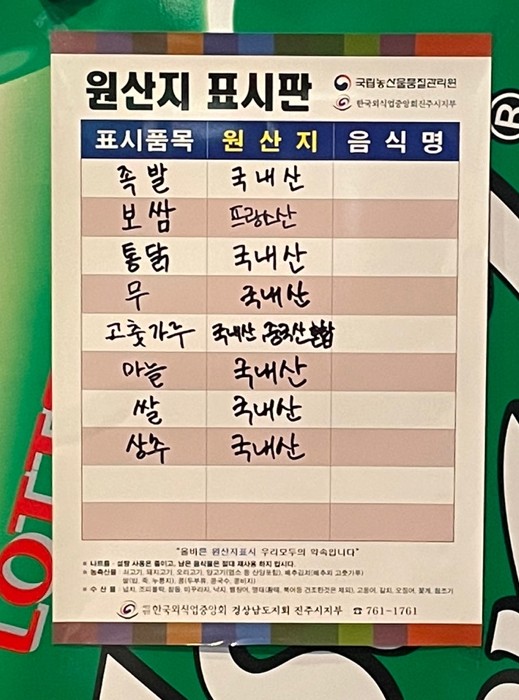 원산지 표시판
국립농산물품질관리원
한국외식업중앙회진주시지부
표시품목 원산지 음식명
족발 국내산
보쌈 프랑스산
통닭 국내산
무 국내산
고춧가루 국내산, 중국산 혼합
마늘 국내산
쌀 국내산
상추 국내산
"올바른 원산지표시 우리모두의 약속입니다"
※ 나트륨 · 설탕 사용은 줄이고, 남은 음식물은 절대 재사용 하지 맙시다.
※ 농축산물 : 쇠고기, 돼지고기, 오리고기, 양고기(염소 등 산양포함), 배추김치(배추와 고춧가루)
쌀(밥, 죽, 누룽지), 콩(두부류, 콩국수, 콩비지)
※ 수 산 물 : 넙치, 조피볼락, 참돔, 미꾸라지, 낙지, 뱀장어, 명태(황태, 북어등 건조한것은 제외), 고등어, 갈치, 오징어, 꽃게, 참조기
한국외식업중앙회 경상남도지회 진주시지부 ☎ 761-1761
LOTTE
®